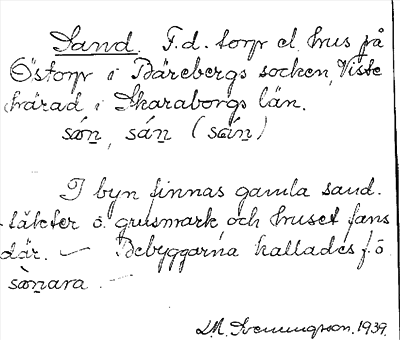 Sand. F.d. torp el. hus på
Östorp i Bärebergs socken, Viste
härad i Skaraborgs län.
sɷn̲, sán̲ (sán̲)
I byn finnas gamla sand-
täkter o. grusmark, och huset fans
där. — Bebyggarna kallades fö
sɷ̀n̲ara. —
L.M. Svenungsson. 1939.